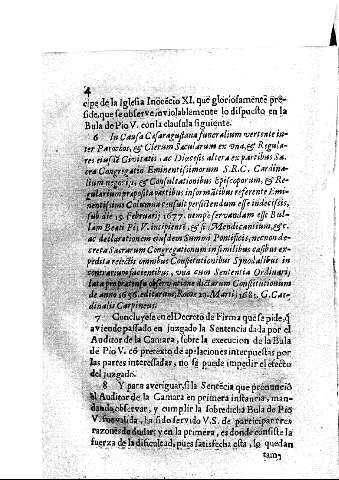 4
cipe de la Iglesia Inocēcio XI. que gloriosamente pre-
side, que se observe inviolablemente lo dispuesto en la
Bula de Pio V. con la clausula siguiente.
6 In Causa Cæsaraugustana funeralium vertente in-
ter Parochos, & Clerum Sæcularum ex vna, & Regula-
res eiusdē Civitatis, ac Diœcesis altera ex partibus Sa-
cra Congregatio Eminentissimorum S.R.C. Cardina-
lium negotijs, & Consultationibus Episcoporum, & Re-
gularium præposita partibus informātibus referente Emi-
nentissimo Columna censuit persistendum esse in decissis,
sub die 19. Februarij 1677. nempè servandam esse Bul-
lam Beati Pij V. incipienti, & si Mendicantium, &c.
ac declarationem eiusdem Summi Pontificis, necnon de-
creta Sacrarum Congregationum in similibus casibus ex-
pedita reiectis omnibus Constitutionibus Synodalibus in
contrarium facientibus, vna cum Sententia Ordinarij
lata pro prætensa observatione dictarum Constitutionum
de anno 1656. editarum, Romæ 29. Martij 1685. G. Car-
dinalis Carpineus.
7 Concluyese en el Decreto de Firma que se pide, q̃
aviendo passado en juzgado la Sentencia dada por el
Auditor de la Camara, sobre la execucion de la Bula
de Pio V. có pretexto de apelaciones interpuestas por
las partes interessadas, no se puede impedir el efecto
del juzgado.
8 Y para averiguar, si la Sentēcia que pronunciò
el Auditor de la Camara en primera instancia, man-
dando observar, y cumplir la sobredicha Bula de Pio
V. fue valida, ha sido servido V.S. de participar tres
razones de dudar; y en la primera, es donde consiste la
fuerza de la dificultad, pues satisfecha esta, lo quedan
tam-